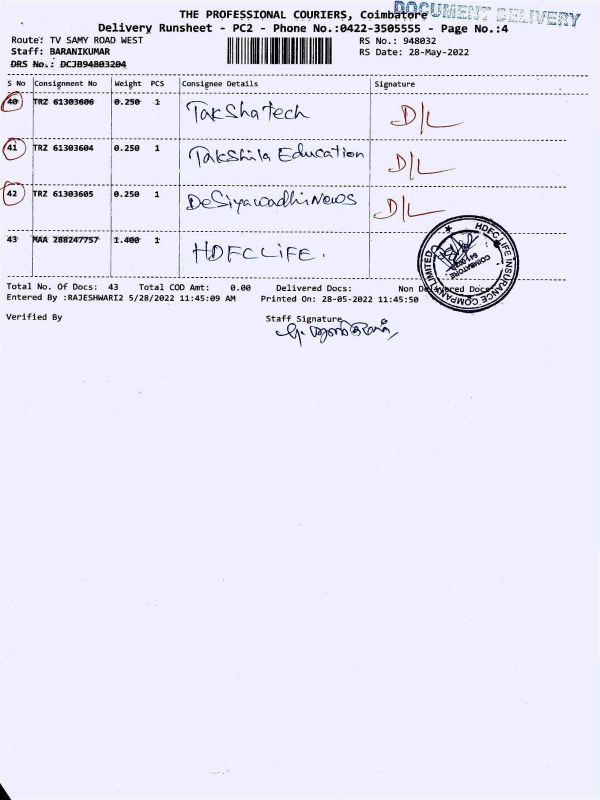 THE PROFESSIONAL COURIERS, Coimbatore
DOCUMENT DELIVERY
Delivery Runsheet - PC2 - Phone No.:0422-3505555 - Page No.:4
Route: TV SAMY ROAD WEST RS No.: 948032
Staff: BARANIKUMAR RS Date: 28-May-2022
DRS No.: DCJB94803204
S No Consignment No Weight PCS Consignee Details Signature
40 TRZ 61303606 0.250 1 TakShaTech D/L
41 TRZ 61303604 0.250 1 Takshila Education D/L
42 TRZ 61303605 0.250 1 DeSiyawadhiNews D/L
43 MAA 288247757 1.400 1 HDFC LiFE.
HDFC LIFE INSURANCE COMPANY LIMITED
COIMBATORE
Total No. Of Docs: 43 Total COD Amt: 0.00 Delivered Docs: Non Delivered Docs:
Entered By :RAJESHWARI2 5/28/2022 11:45:09 AM Printed On: 28-05-2022 11:45:50
Verified By Staff Signature